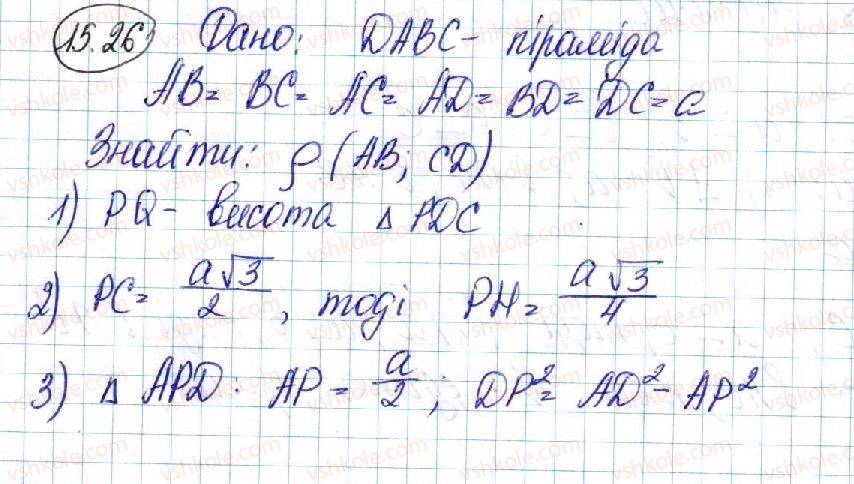 15.26 Дано: DABC - піраміда
AB = BC = AC = AD = BD = DC = a
Знайти: ρ (AB; CD)
1) PQ - висота △ PDC
2) PC = a√3/2, тоді PH = a√3/4
3) △ APD: AP = a/2; DP² = AD² - AP²